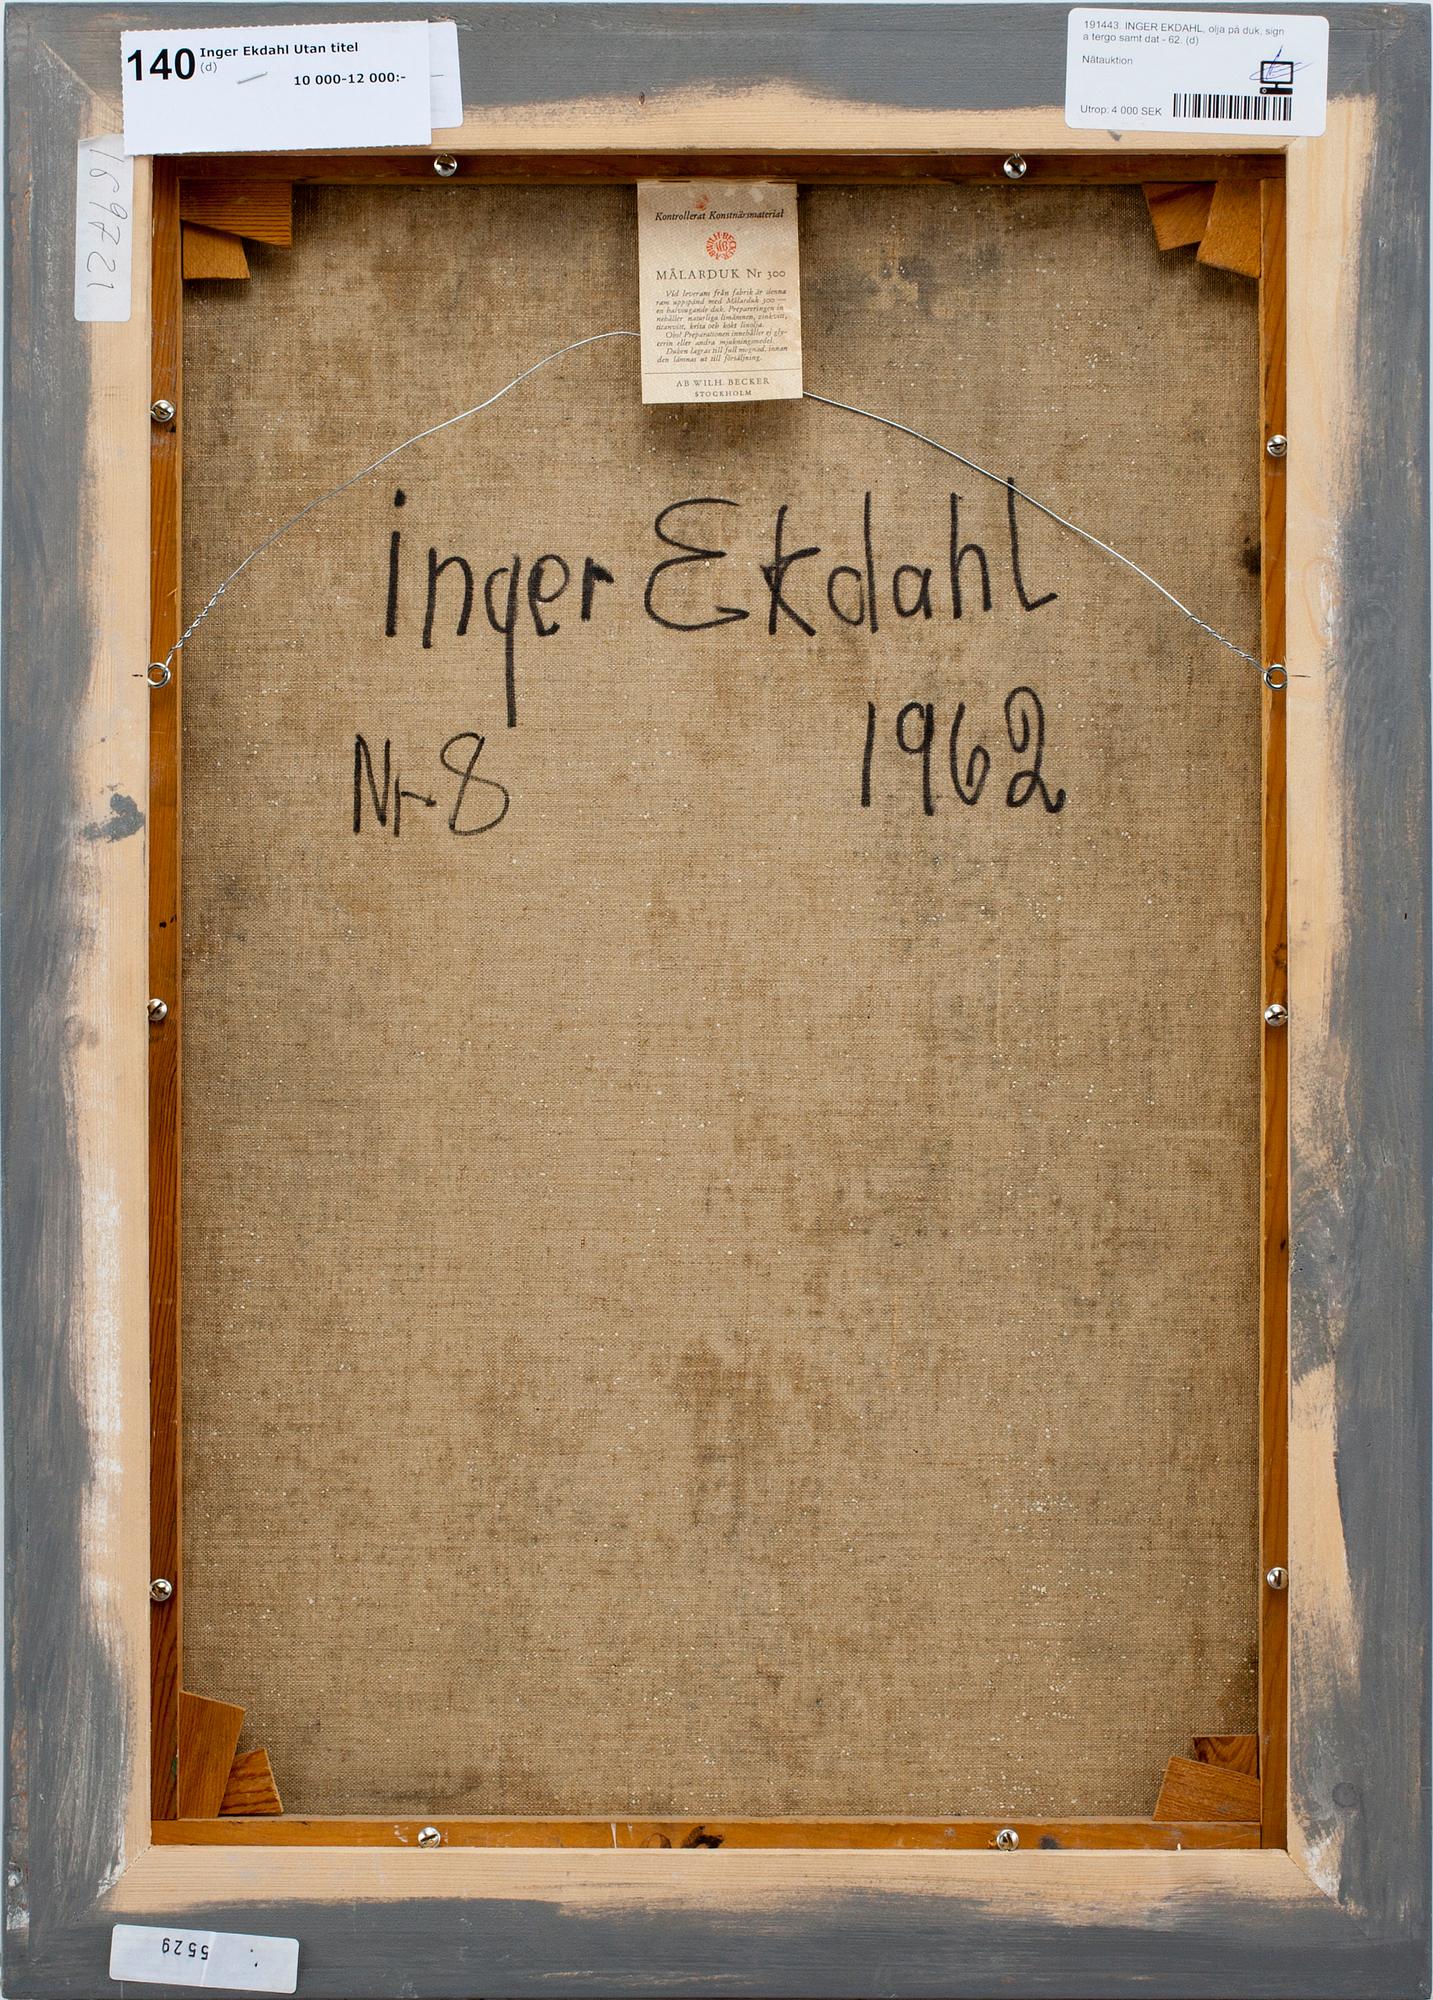 140 Inger Ekdahl Utan titel
(d)
10 000-12 000:-
191443. INGER EKDAHL, olja på duk, sign
a tergo samt dat - 62. (d)
Nätauktion
Utrop: 4 000 SEK
169721
Kontrollerat Konstnärsmaterial
MÅLARDUK Nr 300
Vid leverans från fabrik är denna
ram uppspänd med Målarduk 300 —
en halvsugande duk. Prepareringen in
nehåller naturliga limämnen, zinkvitt,
titanvitt, krita och kokt linolja.
Obs! Preparationen innehåller ej gly-
cerin eller andra mjukningsmedel.
Duken lagras till full mognad, innan
den lämnas ut till försäljning.
AB WILH. BECKER
STOCKHOLM
inger Ekdahl
Nr 8 1962
5529